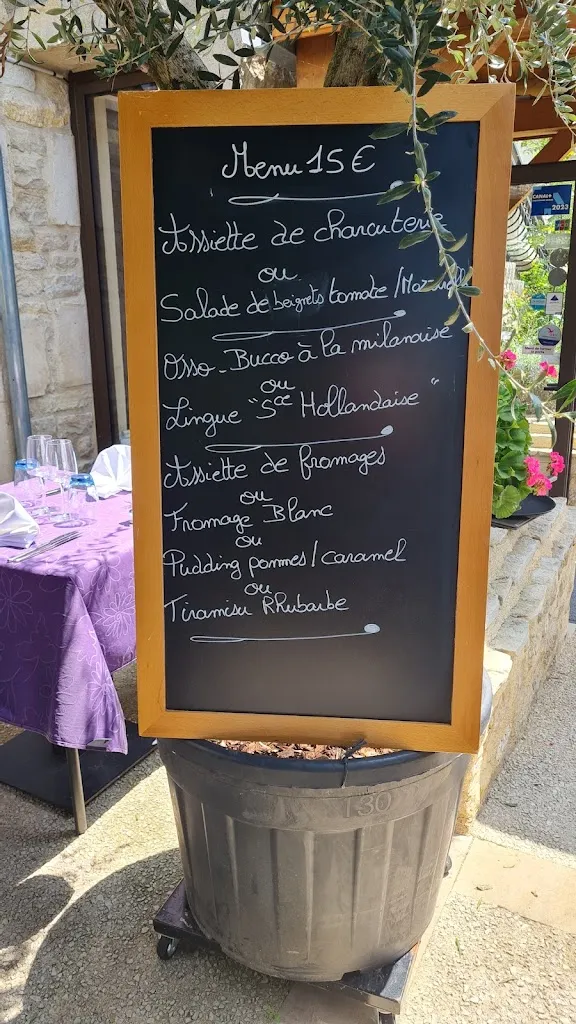 Menu 15€
Assiette de charcuterie
ou
Salade de beignets tomate /
Osso-Bucco à la milanaise
ou
Lingue "Sce Hollandaise"
Assiette de fromages
ou
Fromage Blanc
ou
Pudding pommes / caramel
ou
Tiramisu Rhubarbe
CANAL+
2023
130